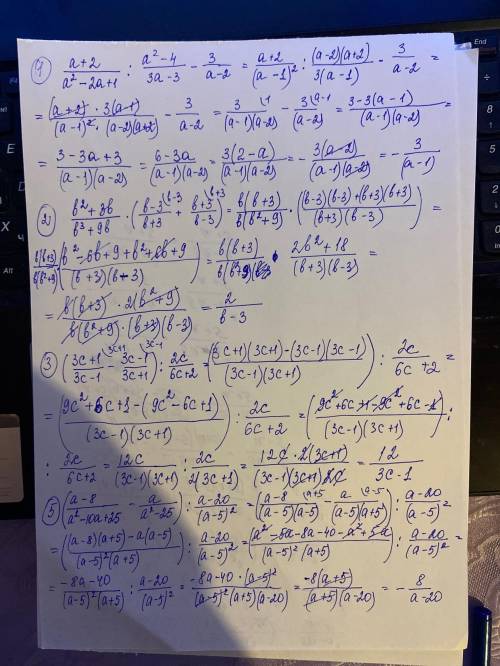 1) (a+2)/(a²-2a+1) : (a²-4)/(3a-3) - 3/(a-2) = (a+2)/(a-1)² : (a-2)(a+2)/3(a-1) - 3/(a-2) =
= (a+2)·3(a-1)/(a-1)²·(a-2)(a+2) - 3/(a-2) = 3/(a-1)(a-2) \1 - 3/(a-2) \a-1 = 3-3(a-1)/(a-1)(a-2) =
= 3-3a+3/(a-1)(a-2) = 6-3a/(a-1)(a-2) = 3(2-a)/(a-1)(a-2) = - 3(a-2)/(a-1)(a-2) = - 3/(a-1)
2) (b²+3b)/(b³+9b) · ((b-3)/(b+3) \b-3 + (b+3)/(b-3) \b+3) = b(b+3)/b(b²+9) · ((b-3)(b-3)+(b+3)(b+3)/(b+3)(b-3)) =
b(b+3)/b(b²+9) (b²-6b+9+b²+6b+9/(b+3)(b-3)) = b(b+3)/b(b²+9) · 2b²+18/(b+3)(b-3) =
= b(b+3)·2(b²+9)/b(b²+9)·(b+3)(b-3) = 2/(b-3)
3) ((3c+1)/(3c-1) \3c+1 - (3c-1)/(3c+1) \3c-1) : 2c/(6c+2) = ((3c+1)(3c+1)-(3c-1)(3c-1)/(3c-1)(3c+1)) : 2c/(6c+2) =
= (9c²+6c+1-(9c²-6c+1)/(3c-1)(3c+1)) : 2c/(6c+2) = (9c²+6c+1-9c²+6c-1/(3c-1)(3c+1)) :
: 2c/(6c+2) = 12c/(3c-1)(3c+1) : 2c/2(3c+1) = 12c·2(3c+1)/(3c-1)(3c+1)2c = 12/(3c-1)
5) ((a-8)/(a²-10a+25) - a/(a²-25)) : (a-20)/(a-5)² = ((a-8)/(a-5)(a-5) \a+5 - a/(a-5)(a+5) \a-5) : (a-20)/(a-5)²
= ((a-8)(a+5)-a(a-5)/(a-5)²(a+5)) : (a-20)/(a-5)² = (a²+5a-8a-40-a²+5a/(a-5)²(a+5)) : (a-20)/(a-5)² =
= -8a-40/(a-5)²(a+5) : (a-20)/(a-5)² = -8a-40·(a-5)²/(a-5)²(a+5)(a-20) = -8(a+5)/(a+5)(a-20) = - 8/(a-20)